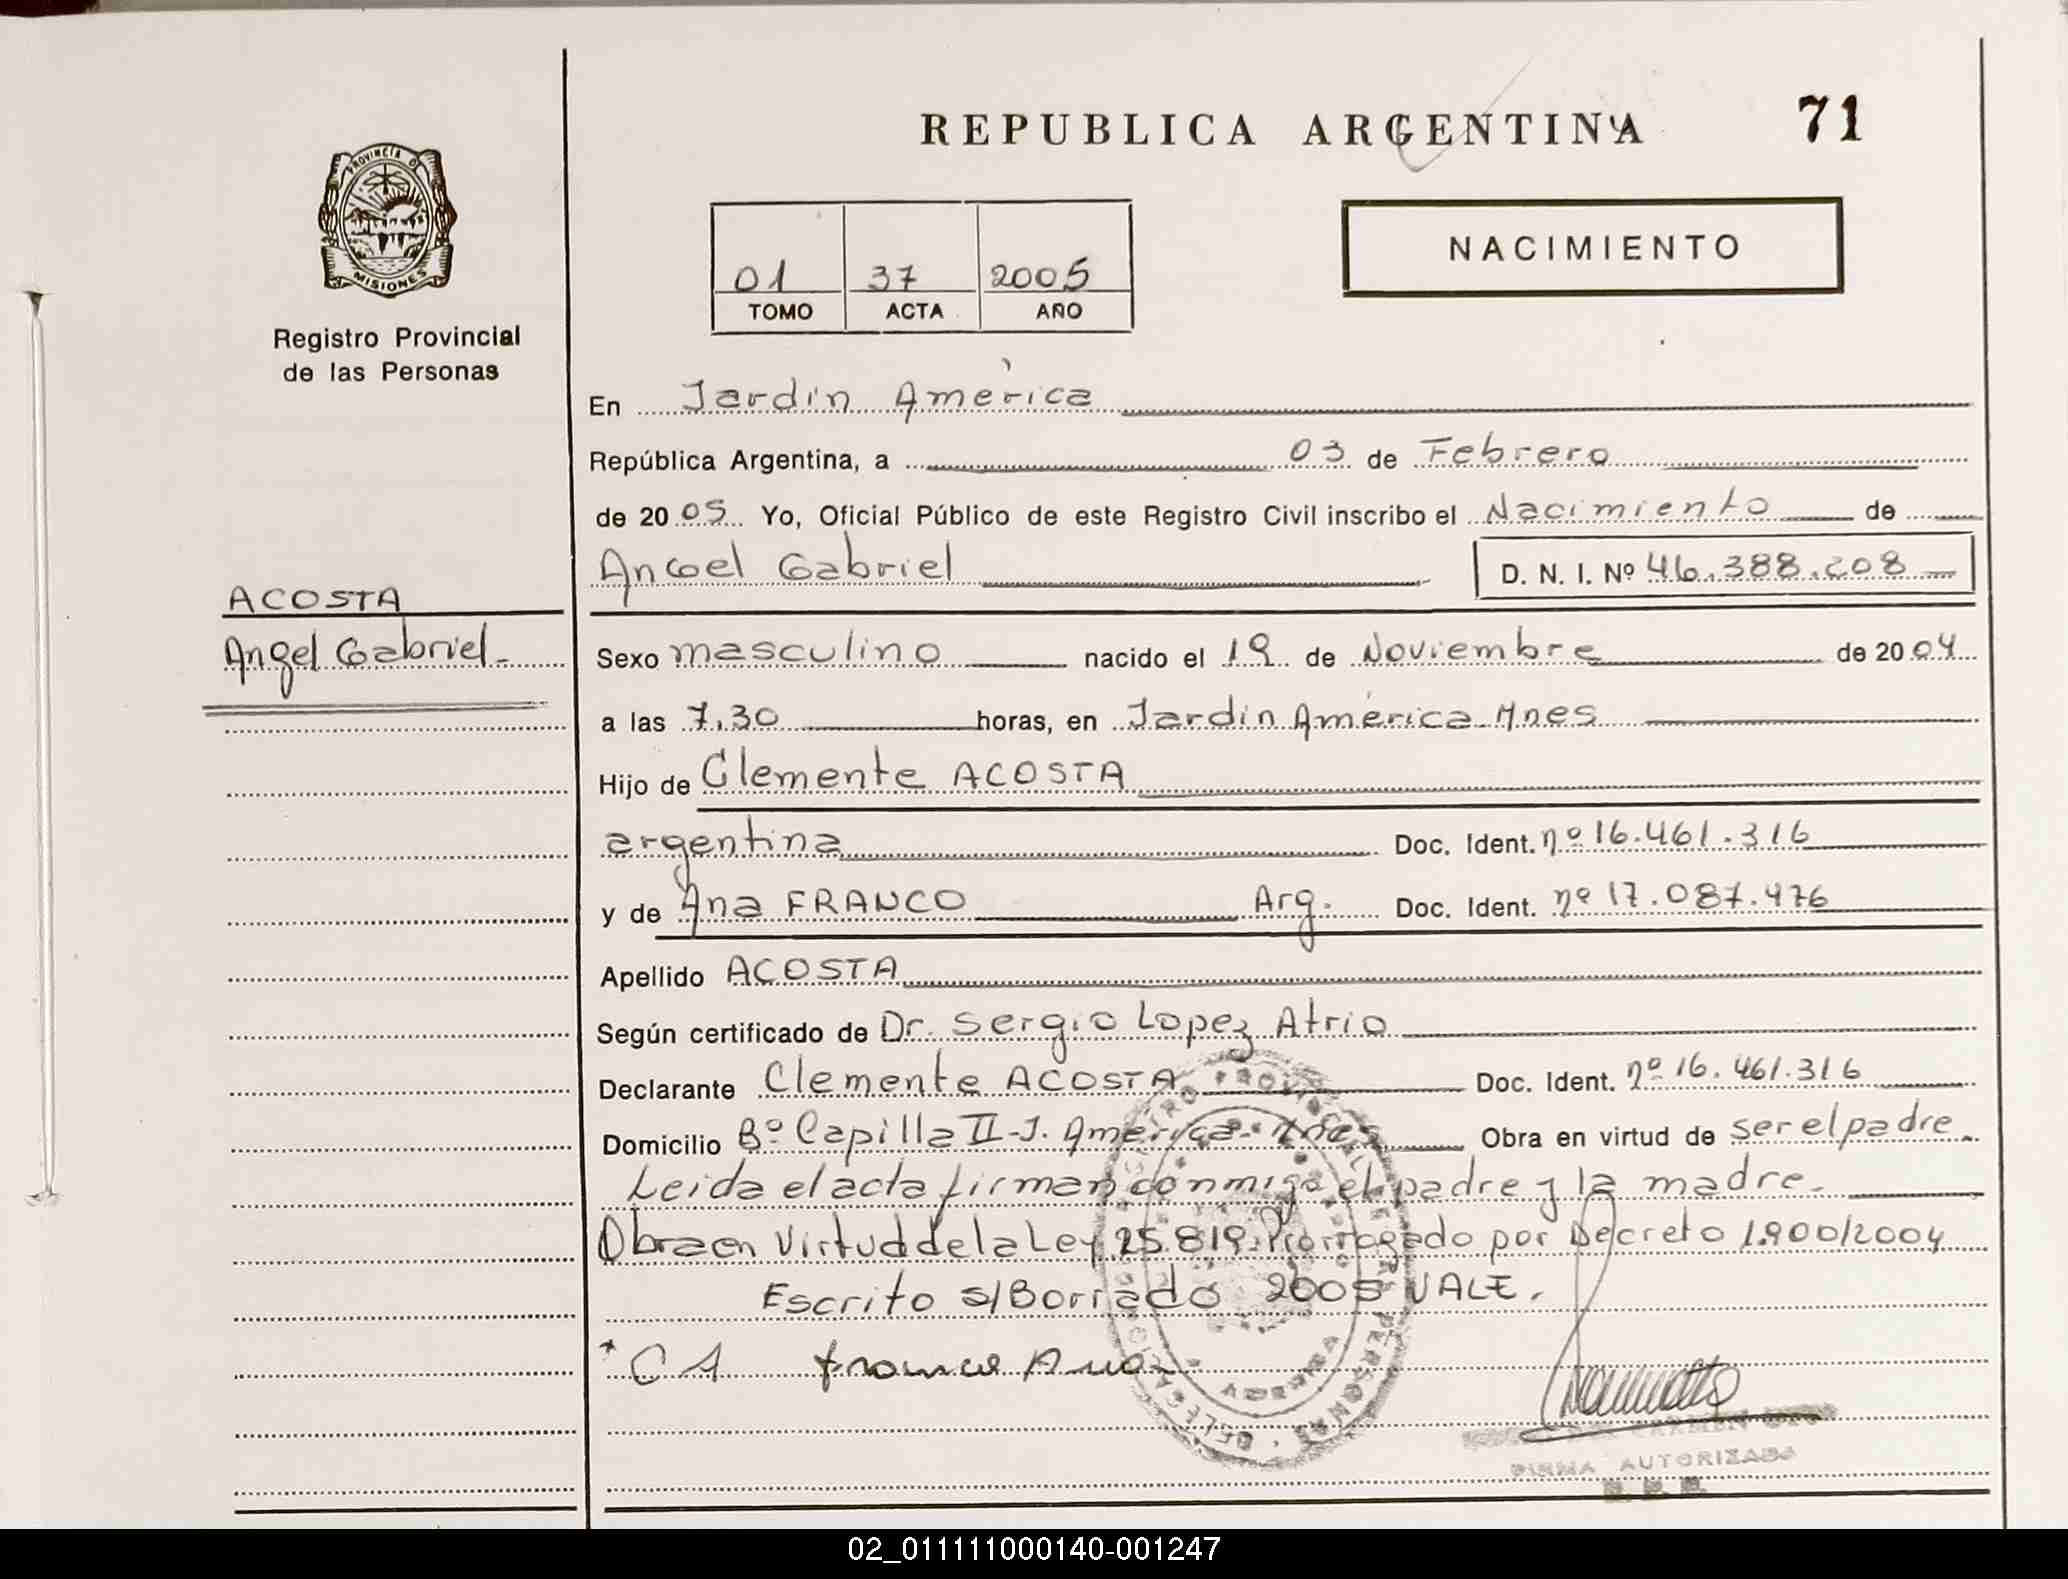 REPUBLICA ARGENTINA
71
PROVINCIA DE
MISIONES
Registro Provincial
de las Personas
01 37 2005
TOMO ACTA AÑO
NACIMIENTO
En Jardín América
República Argentina, a 03 de Febrero
de 20 05 Yo, Oficial Público de este Registro Civil inscribo el Nacimiento de
Angel Gabriel D. N. I. Nº 46.388.208
ACOSTA
Angel Gabriel
Sexo masculino nacido el 19 de Noviembre de 20 04
a las 7,30 horas, en Jardín América Mnes
Hijo de Clemente ACOSTA
argentina Doc. Ident. nº 16.461.316
y de Ana FRANCO Arg. Doc. Ident. nº 17.087.476
Apellido ACOSTA
Según certificado de Dr. Sergio Lopez Atrio
Declarante Clemente ACOSTA Doc. Ident. nº 16.461.316
Domicilio Bº Capilla II-J. América-Mnes Obra en virtud de ser el padre
Leida el acta firman conmigo el padre y la madre.
Obra en Virtud de la Ley 25.819. Prorrogado por Decreto 1.900/2004
Escrito s/Borrado 2005 VALE.
C A Franco Ana
FIRMA AUTORIZADA
02_011111000140-001247